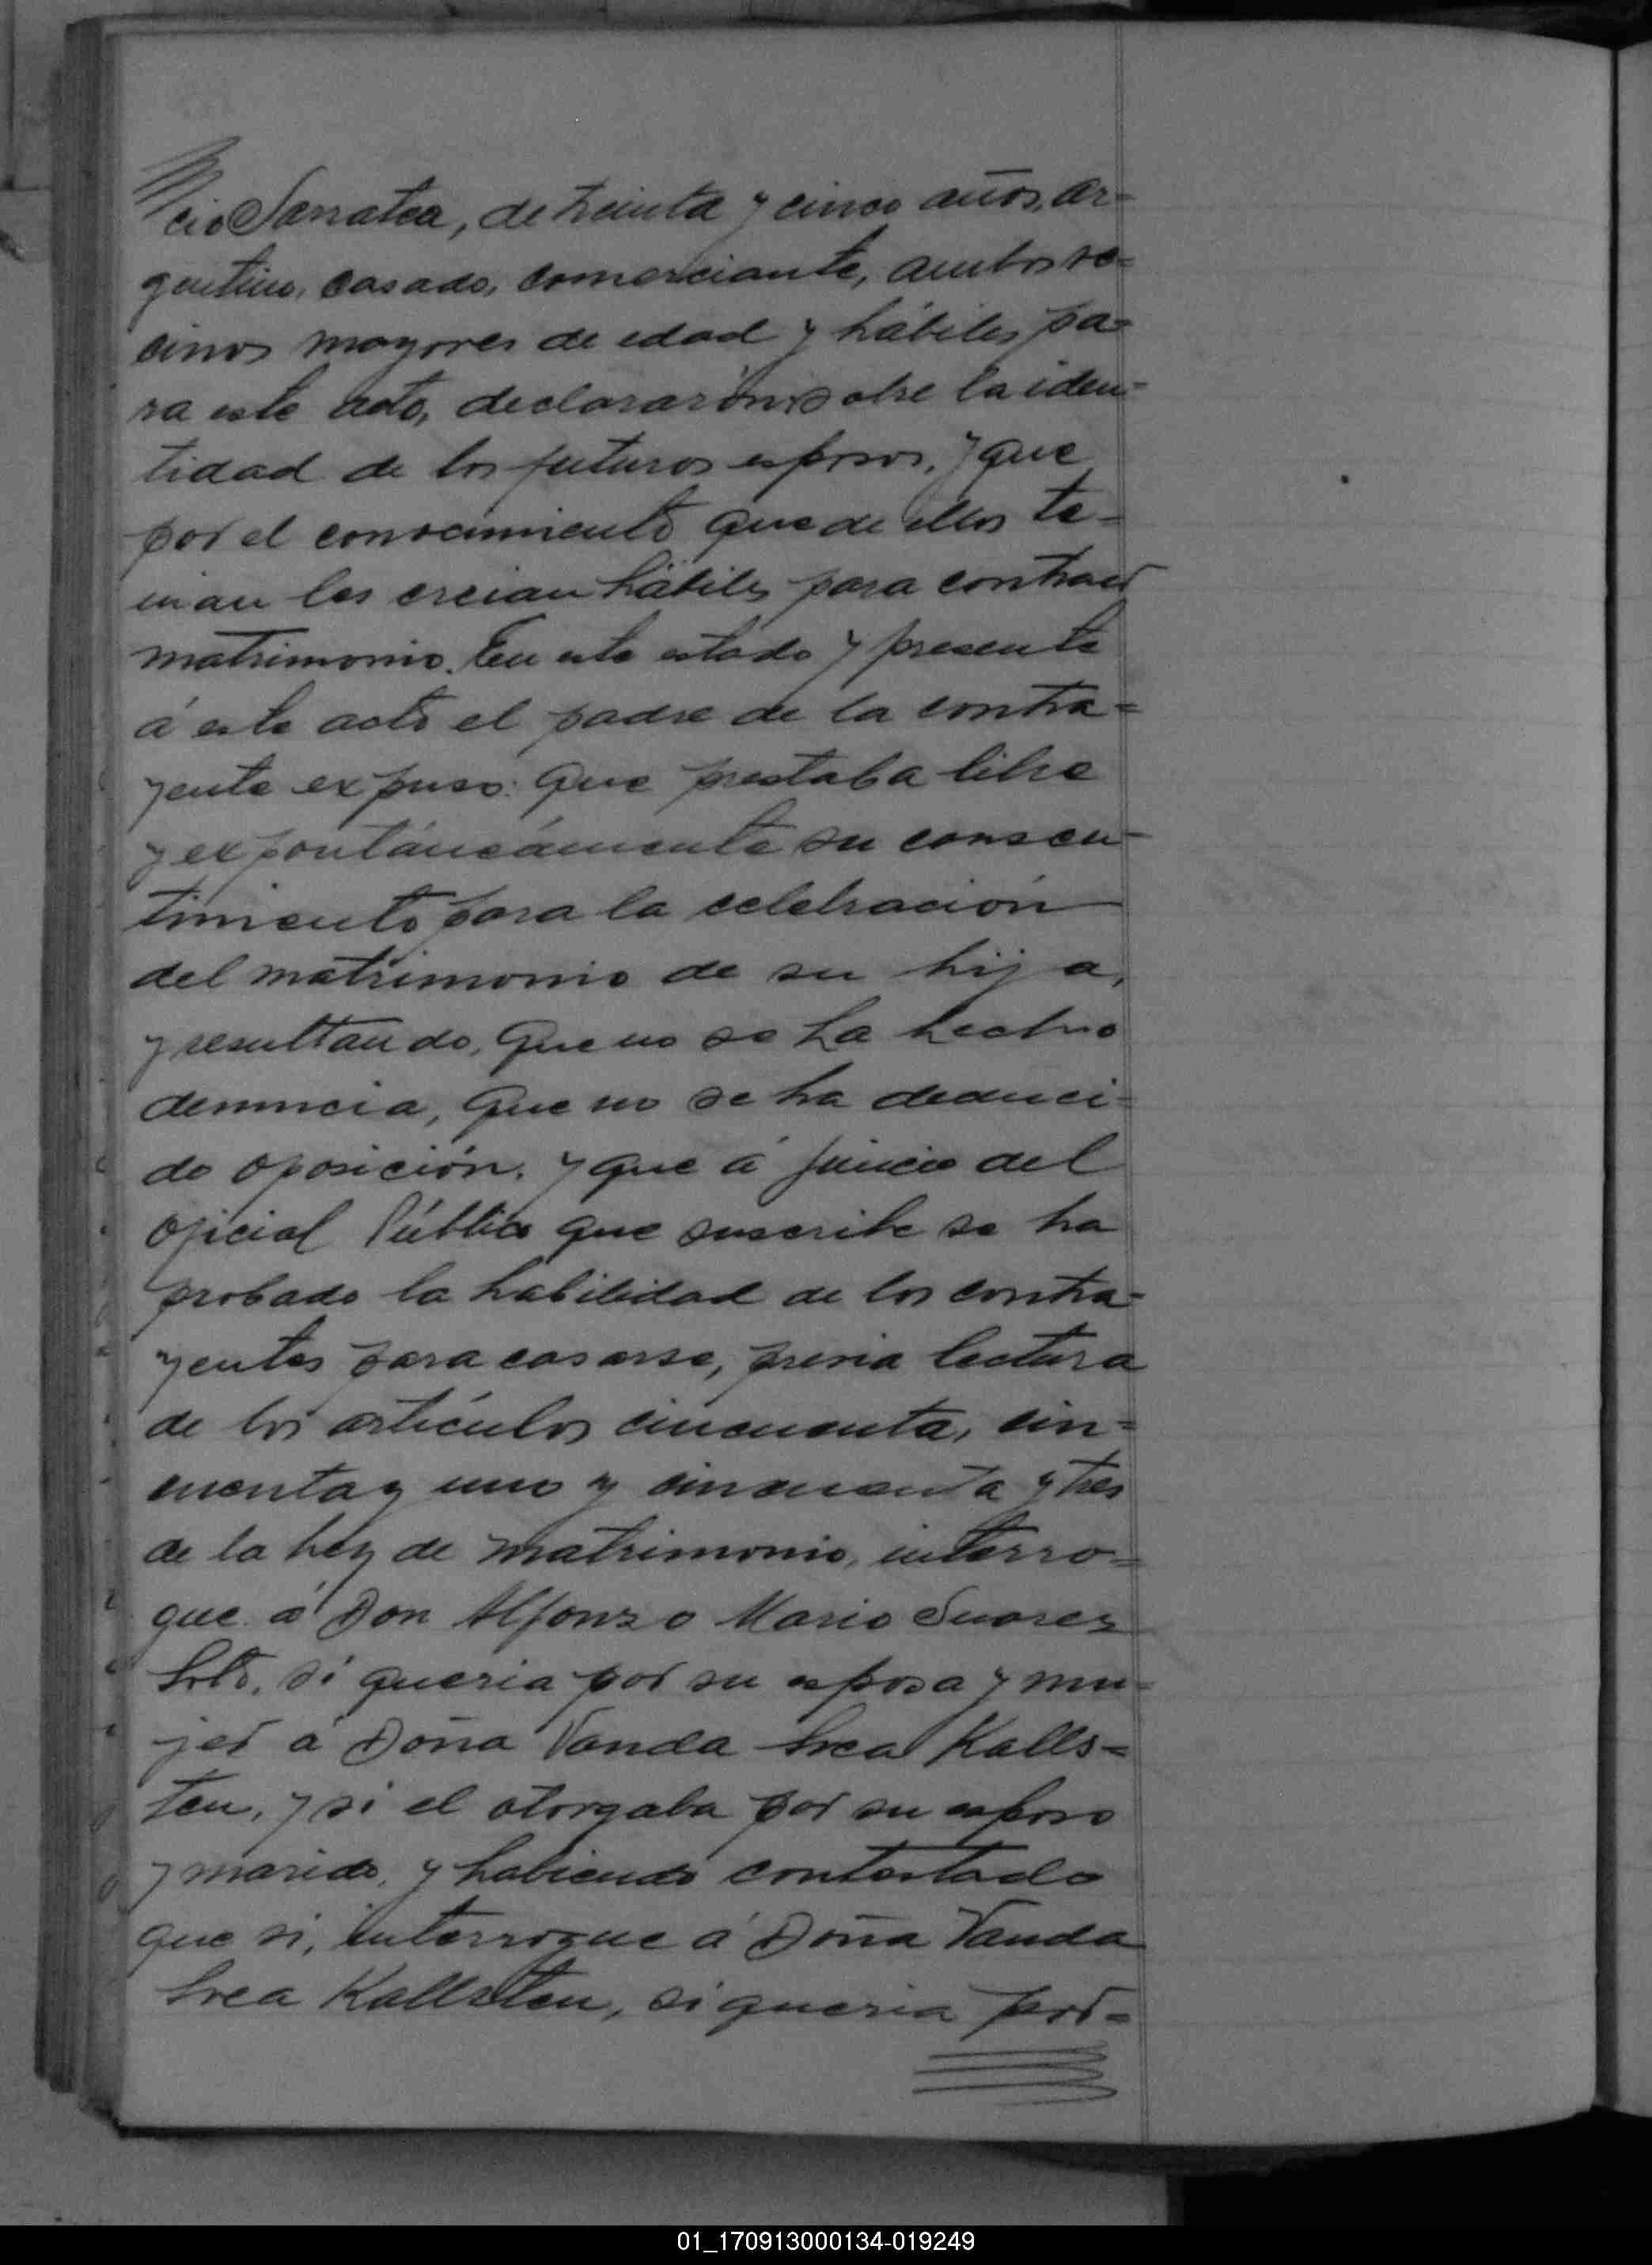 cio Sarratea, de treinta y cinco años, ar=
gentino, casado, comerciante, ambos ve=
cinos mayores de edad y hábiles pa=
ra este acto, declararón sobre la iden=
tidad de los futuros esposos, y que
por el conocimiento que de ellos te=
nian les creian hábiles para contraer
matrimonio. En este estado y presente
á este acto el padre de la contra=
yente expuso: Que prestaba libre
y expontáneámente su consen=
timiento para la celebración
del matrimonio de su hija,
y resultando, que no se ha hecho
denuncia, que no se ha deduci=
do oposición, y que á juicio del
Oficial Público que suscribe se ha
probado la habilidad de los contra=
yentes para casarse, previa lectura
de los artículos cincuenta, cin=
cuenta y uno y cincuenta y tres
de la Ley de Matrimonio, interro=
gue á Don Alfonso Mario Suarez
si queria por su esposa y mu=
jer á Doña Vanda Svea Kalls=
ten, y si el otorgaba por su esposo
y marido, y habiendo contestado
que si, interrogue á Doña Vanda
Svea Kallsten, si queria por=
01_170913000134-019249